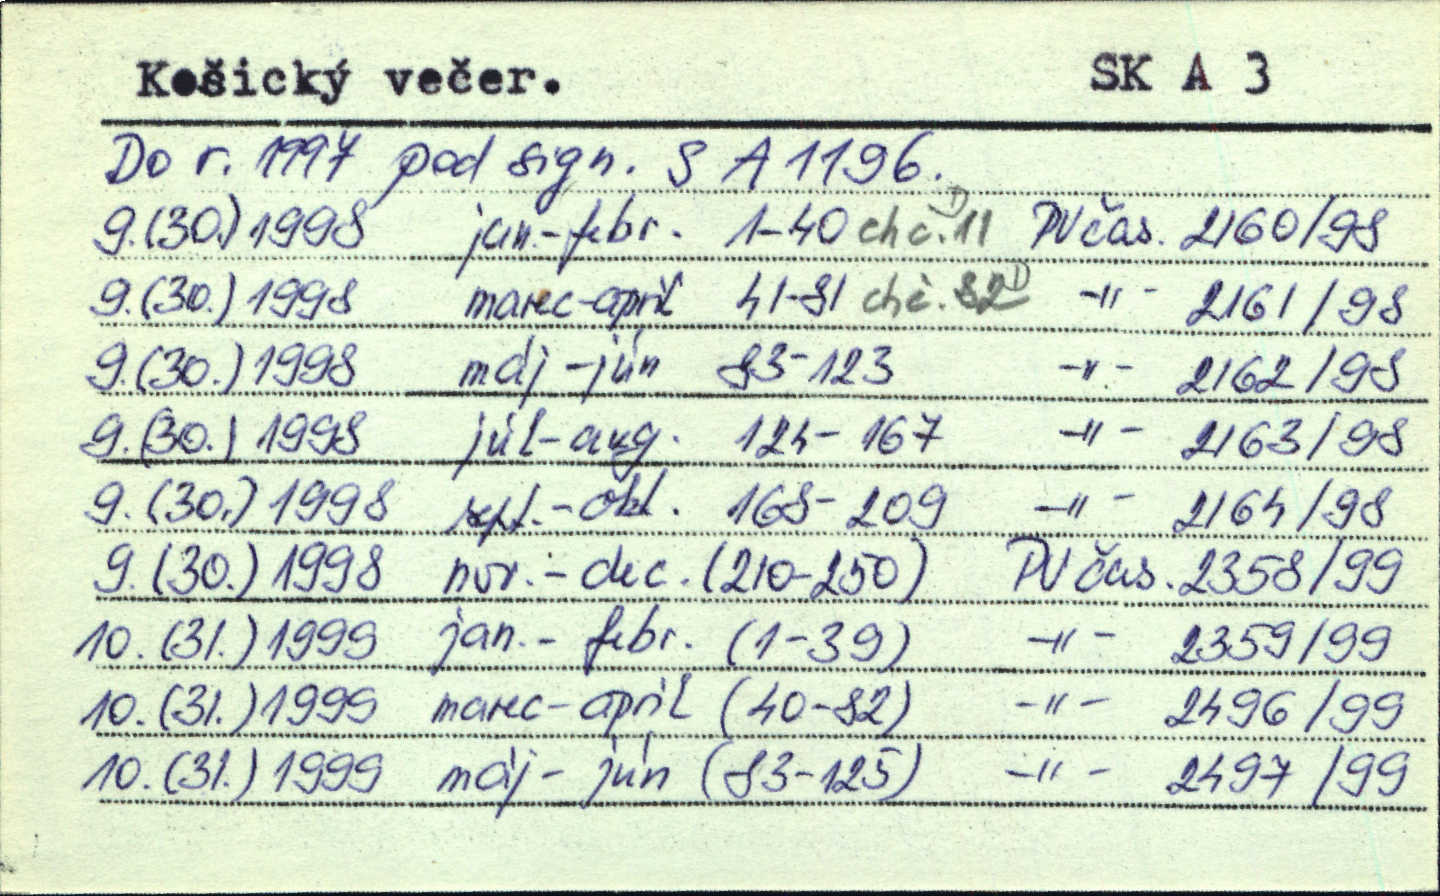 Košický večer. SK A 3
Do r. 1997 pod sign. S A 1196.
9.(30.) 1998 jan.-febr. 1-40 chč. 11 D PV čas. 2160/98
9.(30.) 1998 marec-apríl 41-81 chč. 82 D -"- 2161/98
9.(30.) 1998 máj-jún 83-123 -"- 2162/98
9.(30.) 1998 júl-aug. 124-167 -"- 2163/98
9.(30.) 1998 sept.-okt. 168-209 -"- 2164/98
9.(30.) 1998 nov.-dec. (210-250) PV čas. 2358/99
10.(31.) 1999 jan.-febr. (1-39) -"- 2359/99
10.(31.) 1999 marec-apríl (40-82) -"- 2496/99
10.(31.) 1999 máj-jún (83-125) -"- 2497/99